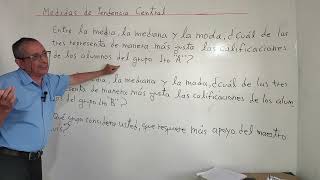 Medidas de Tendencia Central
Entre la media, la mediana y la moda, ¿cuál de las
tres representa de manera más justa las calificaciones
de los alumnos del grupo 1ro "A"?
la mediana y la moda, ¿cuál de las tres
de manera más justa las calificaciones de los alum
del grupo 1ro B"?
Qué grupo considera usted, que requiere más apoyo del maestro